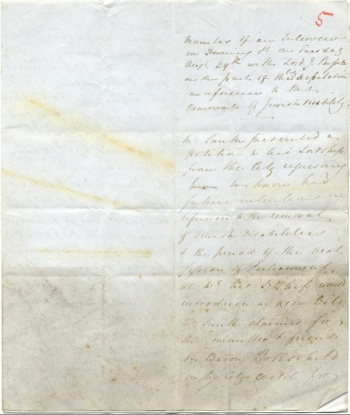 5
Minutes of an Interview
in Downing St on Tuesday
Aug. 29th with the Lord J. Russell
on the part of the Deputation
in reference to the
Removal of Jewish Disability
Mr Smith presented a
petition to his Lordship
from the City requesting
to know his
future intentions in
reference to the removal
of Jewish Disabilities
& the period of the next
Session of Parliament,
at
introduce a new Bill
Mr Smith claimed for
the
Baron Rothschild
in the City